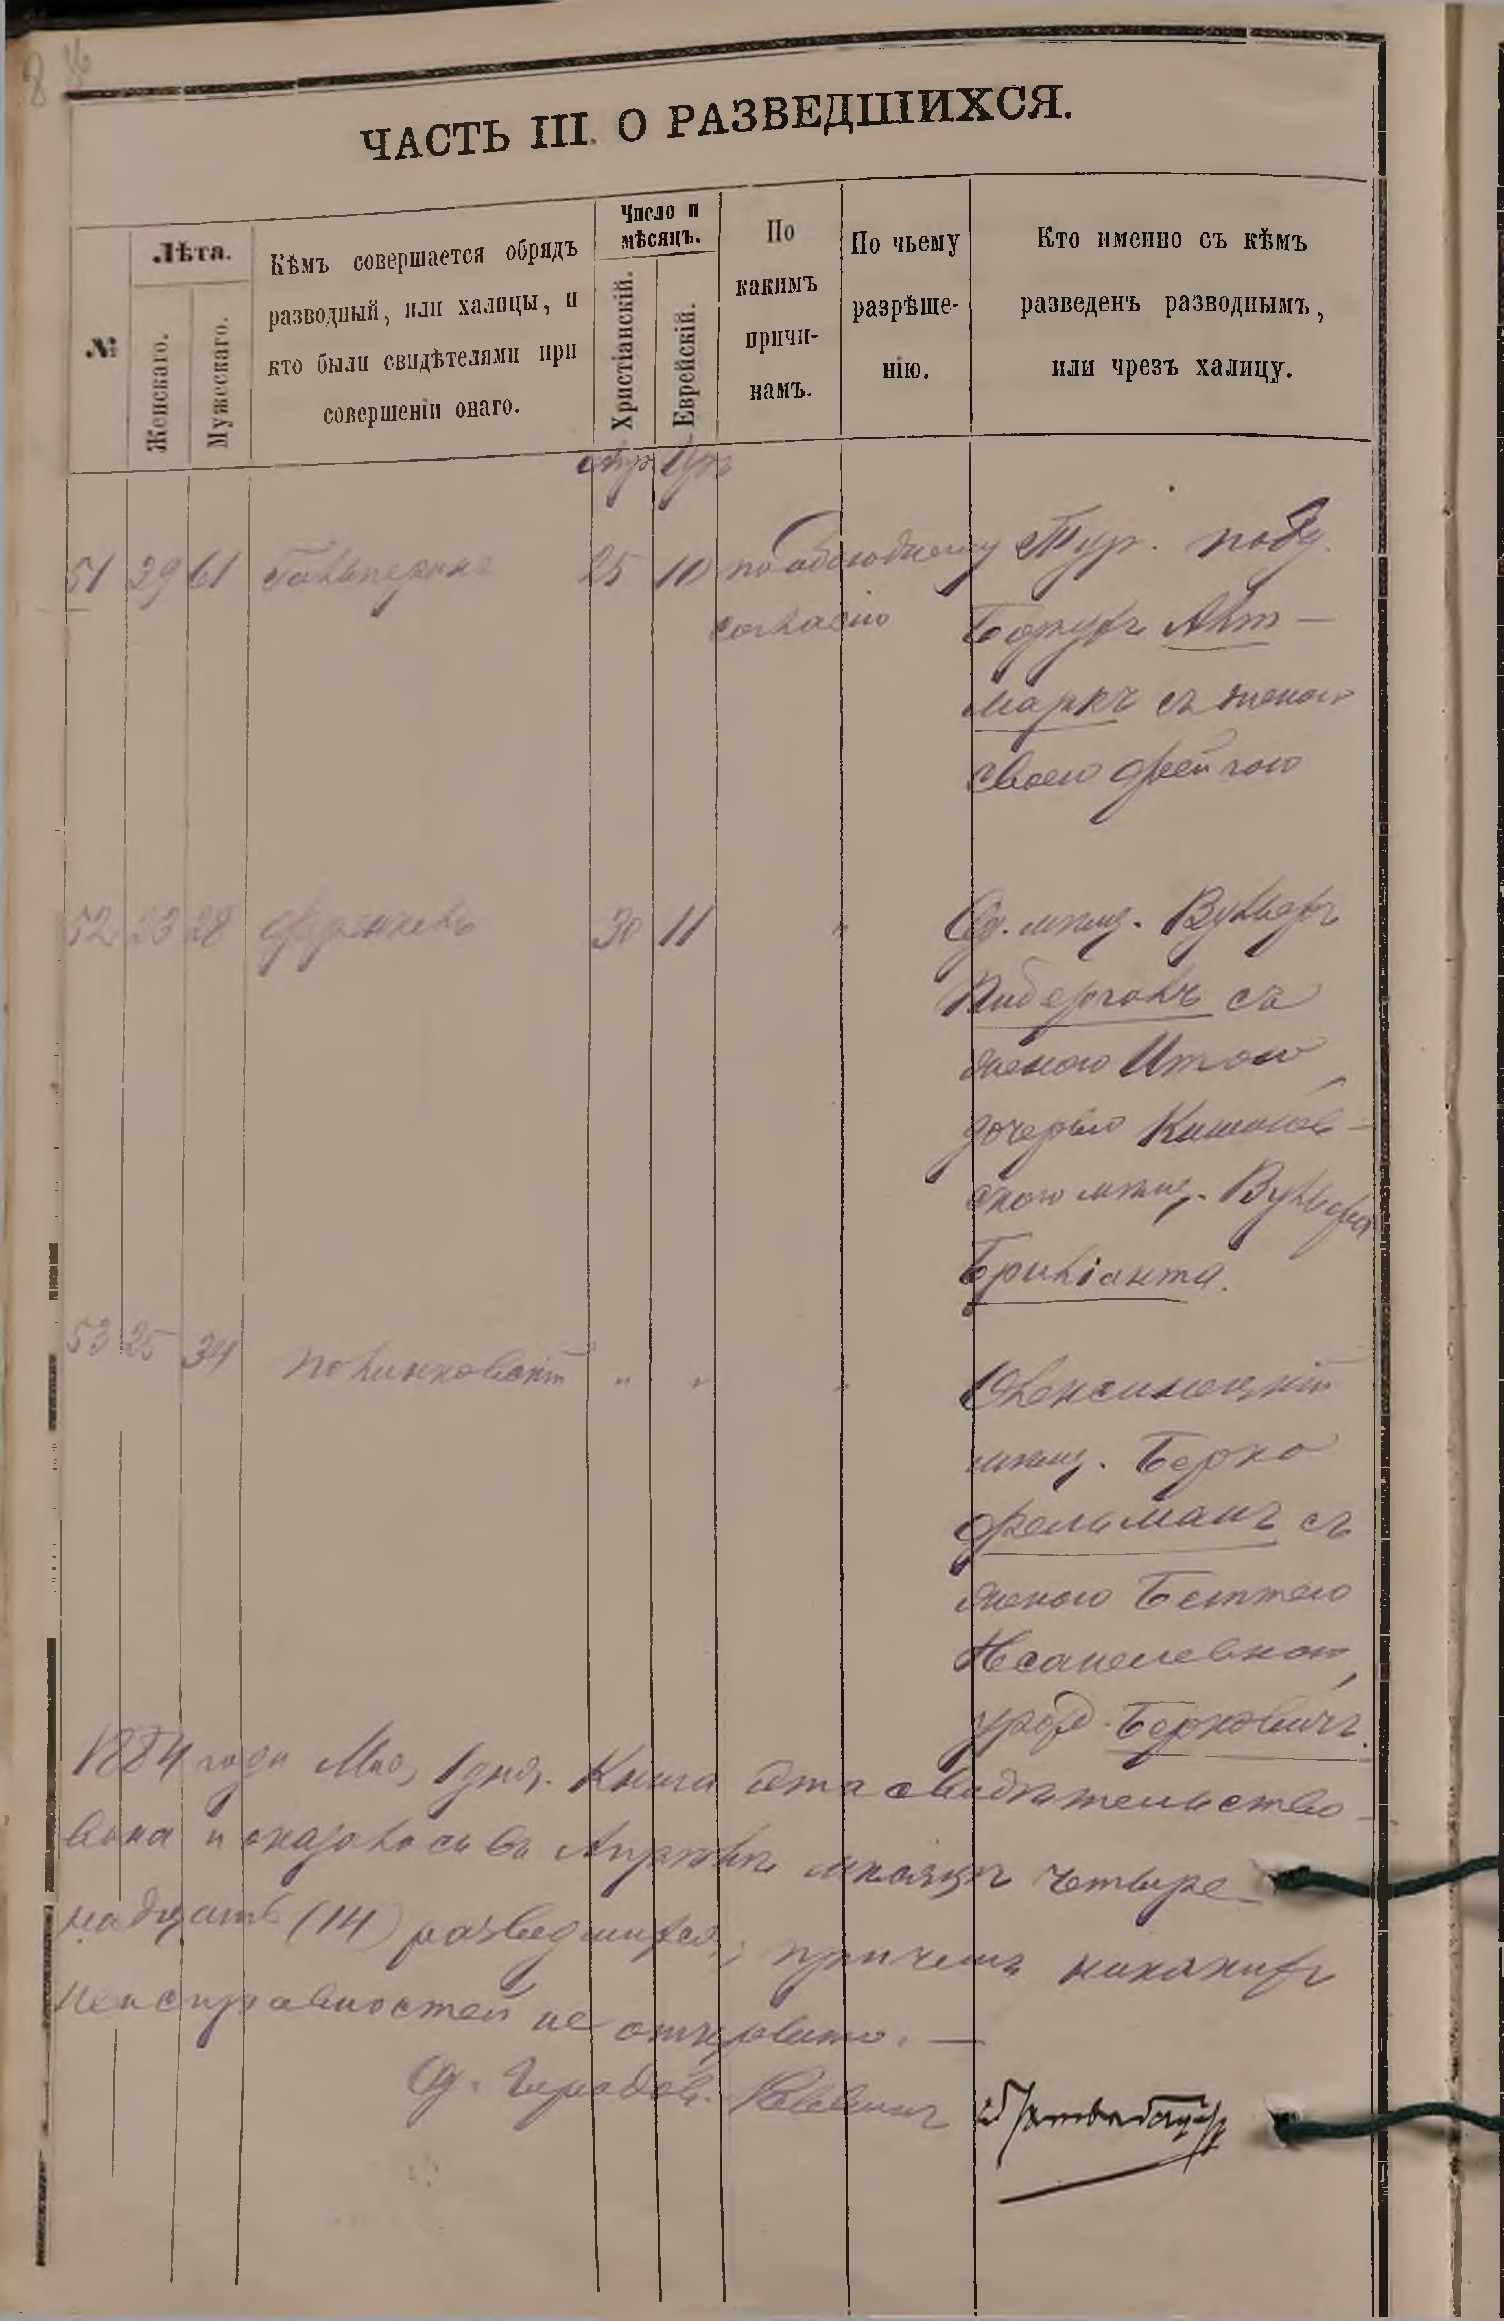 ЧАСТЬ III. О РАЗВЕДШИХСЯ.
№
Лѣта.
Женскаго.
Мужескаго.
Кѣмъ совершается обрядъ
разводный, или халицы, и
кто были свидѣтелями при
совершеніи онаго.
Число и
мѣсяцъ.
Христіанскій.
Еврейскій.
По
какимъ
причи-
намъ.
По чьему
разрѣше-
нію.
Кто именно съ кѣмъ
разведенъ разводнымъ,
или чрезъ халицу.
51 29 61 Гальперинъ 25 10 по обоюдному Тур. подд.
согласію Борухъ Альт-
маркъ съ женою
своею Фейгою
52 23 28 Френкель 30 11 " Од. мѣщ. Вульфъ
съ
женою Итою,
дочерью Кишинев-
скаго мѣщ. Вульфа
Брилianта.
53 25 34 Полинковскій " " "
мѣщ. Берко
Фельманъ съ
женою Бейлею
урод. Берковичъ.
1884 года Мая 1 дня. Книга эта свидѣтельство-
вана и оказалось въ Апрѣлѣ мѣсяцѣ четыре-
надцать (14) разведшихся; причемъ никакихъ
неисправностей не открыто. —
Од. Городов. Раввинъ